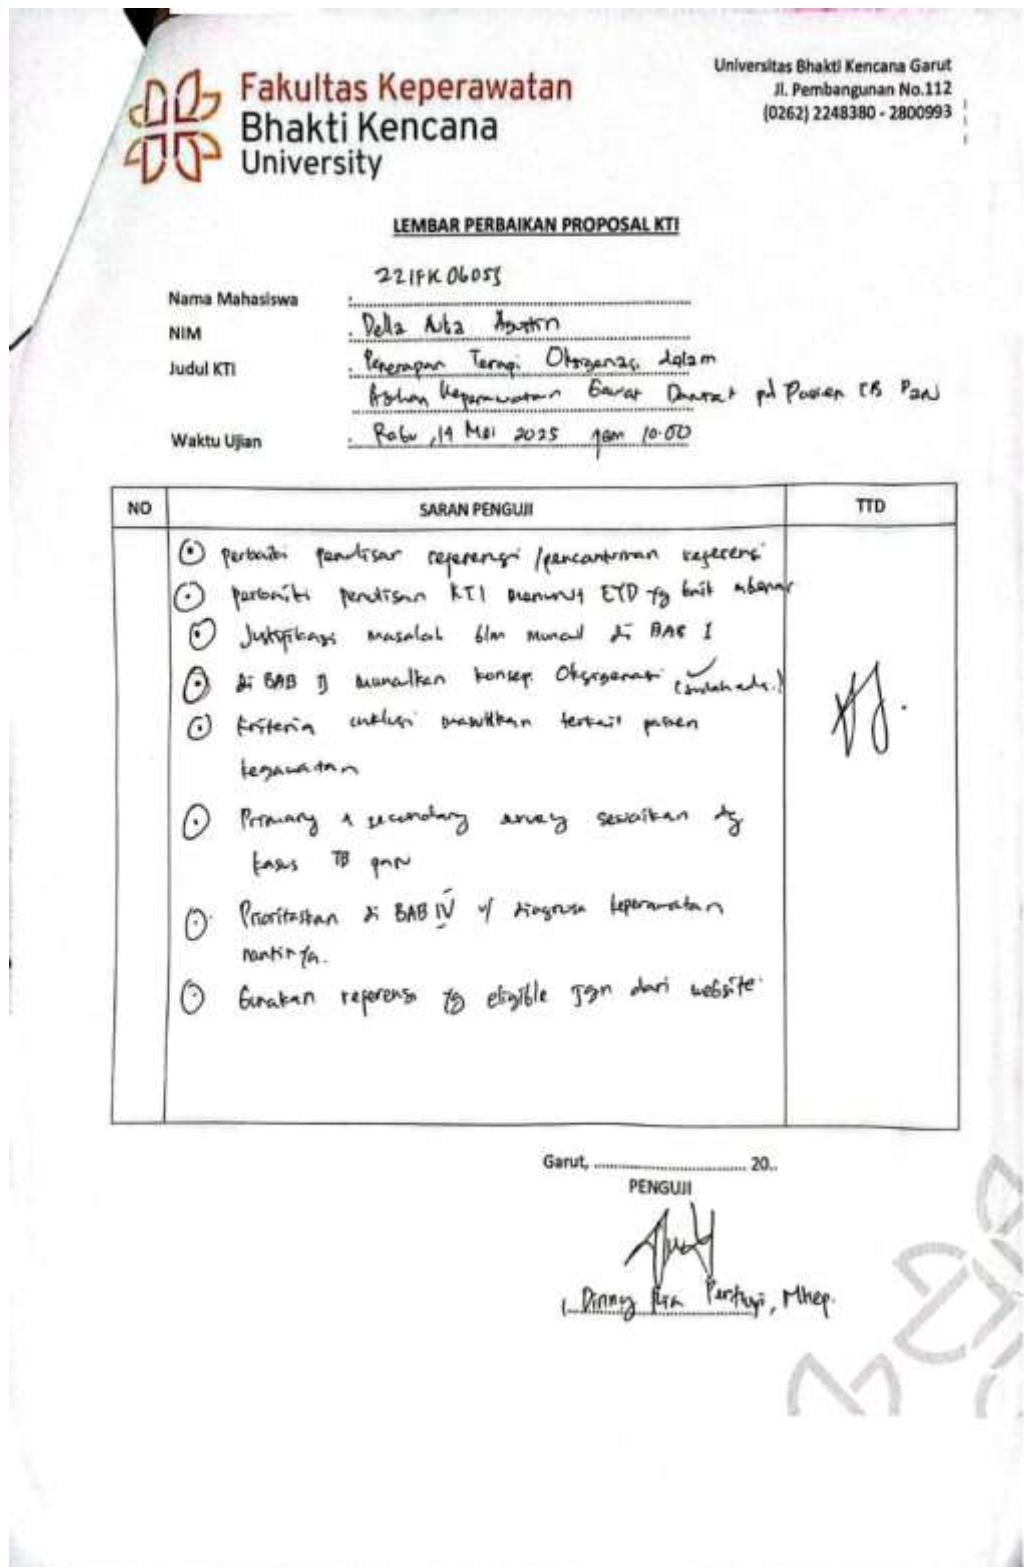 Fakultas Keperawatan
Bhakti Kencana
University
Universitas Bhakti Kencana Garut
Jl. Pembangunan No.112
(0262) 2248380 - 2800993
LEMBAR PERBAIKAN PROPOSAL KTI
Nama Mahasiswa : 221FK06053
NIM : Della
Judul KTI : Penerapan Terapi Oksigenasi dalam
Asuhan Keperawatan Gawat Darurat pd Pasien TB Paru
Waktu Ujian : Rabu, 14 Mei 2025 jam 10.00
NO SARAN PENGUJI TTD
perbaiki penulisan referensi / pencantuman referensi
perbaiki penulisan KTI menurut EYD yg baik & benar
Justifikasi masalah blm muncul di BAB I
di BAB II munculkan konsep Oksigenasi (sudah ada.)
Kriteria inklusi masukkan terkait pasien
kegawatan
Primary & secondary survey sesuaikan dg
kasus TB paru
Prioritaskan di BAB IV u/ diagnosa keperawatan
nantinya.
Gunakan referensi yg eligible jgn dari website.
Garut, ........................ 20..
PENGUJI
Dinny Ria Pertiwi, MKep.